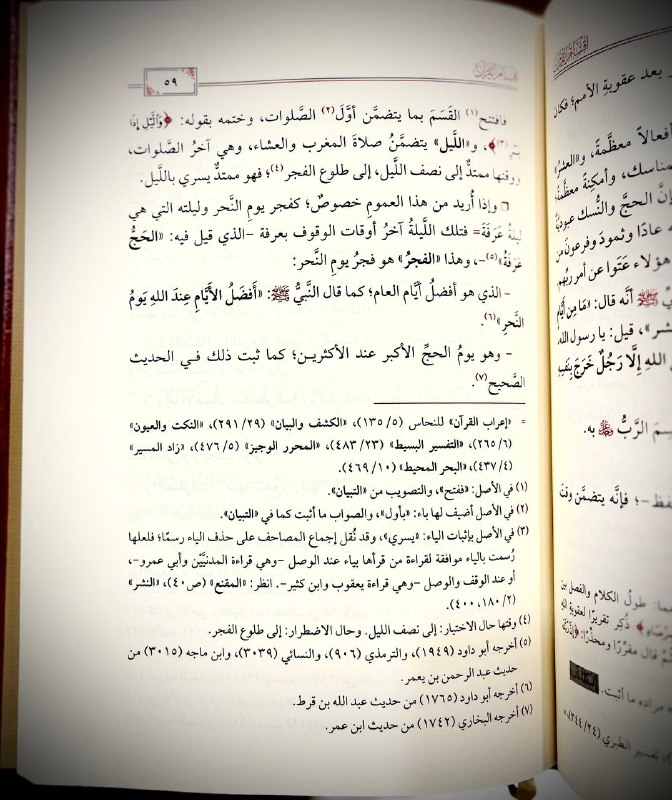 أقسام القرآن
٥٩
فافتتح(١) القَسَمَ بما يتضمَّن أوَّلَ(٢) الصَّلوات، وختمه بقوله: ﴿وَٱلَّيْلِ إِذَا
يَسْرِ﴾(٣)، و«اللَّيل» يتضمَّنُ صلاةَ المغرب والعشاء، وهي آخرُ الصَّلوات،
ووقتها ممتدٌّ إلى نصف اللَّيل، إلى طلوع الفجر(٤)؛ فهو ممتدٌّ يسري باللَّيل.
□ وإذا أُريد من هذا العمومِ خصوصٌ؛ كفجر يومِ النَّحر وليلته التي هي
ليلةُ عَرَفَةَ= فتلك اللَّيلةُ آخرُ أوقات الوقوف بعرفة -الذي قيل فيه: «الحَجُّ
عَرَفَةُ»(٥)-، وهذا «الفَجرُ» هو فجرُ يومِ النَّحر:
- الذي هو أفضلُ أيَّام العام؛ كما قال النَّبيُّ ﷺ: «أَفضَلُ الأيَّامِ عِندَ اللهِ يَومُ
النَّحرِ»(٦).
- وهو يومُ الحجِّ الأكبر عند الأكثرين؛ كما ثبت ذلك في الحديث
الصَّحيح(٧).
= «إعراب القرآن» للنحاس (١٣٥/٥)، «الكشف والبيان» (٢٩١/٢٩)، «النكت والعيون»
(٢٦٥/٦)، «التفسير البسيط» (٤٨٣/٢٣)، «المحرر الوجيز» (٤٧٦/٥)، «زاد المسير»
(٤٣٧/٤)، «البحر المحيط» (٤٦٩/١٠).
(١) في الأصل: «ففتح»، والتصويب من «التبيان».
(٢) في الأصل أضيف لها باء: «بأول»، والصواب ما أثبت كما في «التبيان».
(٣) في الأصل بإثبات الياء: «يسري»، وقد نُقل إجماع المصاحف على حذف الياء رسمًا؛ فلعلها
رُسمت بالياء موافقة لقراءة من قرأها بياء عند الوصل -وهي قراءة المدنيَّيْن وأبي عمرو-،
أو عند الوقف والوصل -وهي قراءة يعقوب وابن كثير-. انظر: «المقنع» (ص٤٠)، «النشر»
(٤٠٠،١٨٠/٢).
(٤) وقتها حال الاختيار: إلى نصف الليل. وحال الاضطرار: إلى طلوع الفجر.
(٥) أخرجه أبو داود (١٩٤٩)، والترمذي (٩٠٦)، والنسائي (٣٠٣٩)، وابن ماجه (٣٠١٥) من
حديث عبد الرحمن بن يعمر.
(٦) أخرجه أبو داود (١٧٦٥) من حديث عبد الله بن قرط.
(٧) أخرجه البخاري (١٧٤٢) من حديث ابن عمر.
أقسام القرآن
بعد عقوبةِ الأمم؛ فكان
أفعالاً معظَّمةً، و«العشرُ»
مناسك، وأمكِنةً معظَّمةً
إنَّ الحجَّ والنُّسك عبوديَّةٌ
عادًا وثمودَ وفرعونَ من
هؤلاء عَتَوا عن أمر ربِّهم
ﷺ أنَّه قال: «مَا مِن أيَّامٍ
، قيل: يا رسول الله،
اللهِ إلَّا رَجُلٌ خَرَجَ بِنَفسِهِ
الرَّبُّ به.
؛ فإنَّه يتضمَّن وقتَ
طولُ الكلام والفصل بين
ذُكِر تقريرًا لعقوبة
قال مقرِّرًا ومحذِّرًا:
مراده ما أثبت.
تفسير الطبري (٢٤/